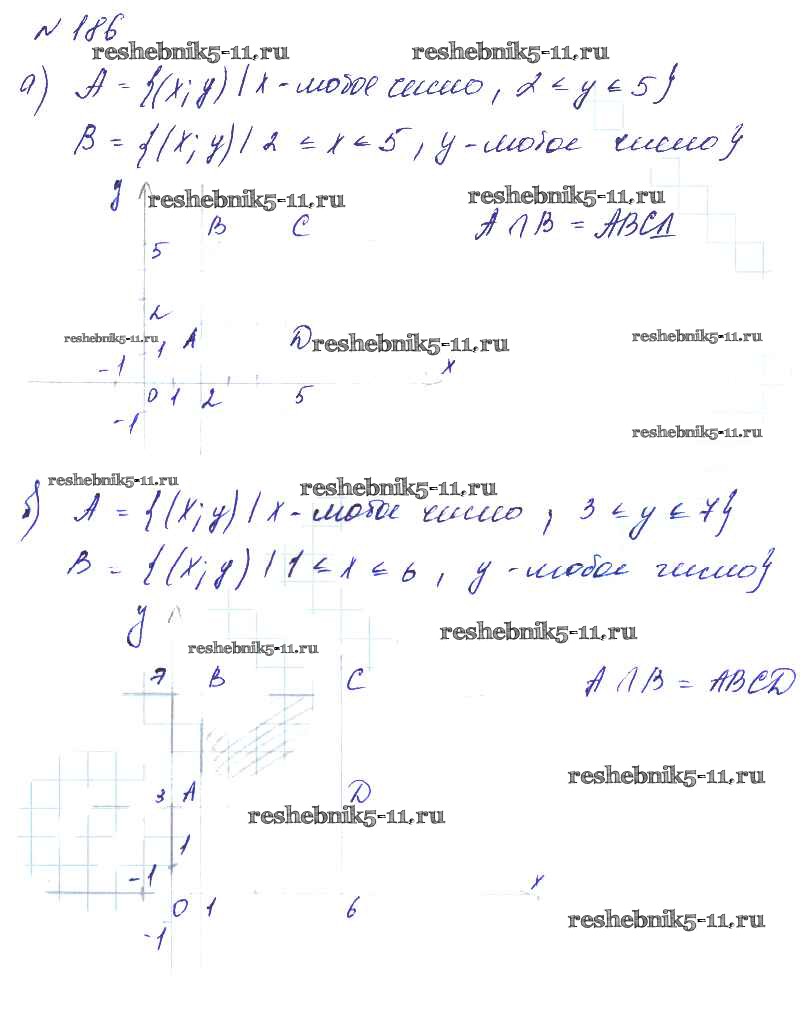 № 186
reshebnik5-11.ru reshebnik5-11.ru
а) A = {(x; y) | x - любое число, 2 ≤ y ≤ 5}
B = {(x; y) | 2 ≤ x ≤ 5, y - любое число}
y reshebnik5-11.ru reshebnik5-11.ru
B C A ∩ B = ABCD
5
2
reshebnik5-11.ru 1 A D reshebnik5-11.ru reshebnik5-11.ru
-1 x
0 1 2 5
-1
reshebnik5-11.ru
reshebnik5-11.ru reshebnik5-11.ru
б) A = {(x; y) | x - любое число, 3 ≤ y ≤ 7}
B = {(x; y) | 1 ≤ x ≤ 6, y - любое число}
y reshebnik5-11.ru
reshebnik5-11.ru
7 B C A ∩ B = ABCD
reshebnik5-11.ru
3 A D
reshebnik5-11.ru
1
-1 x
0 1 6
reshebnik5-11.ru
-1